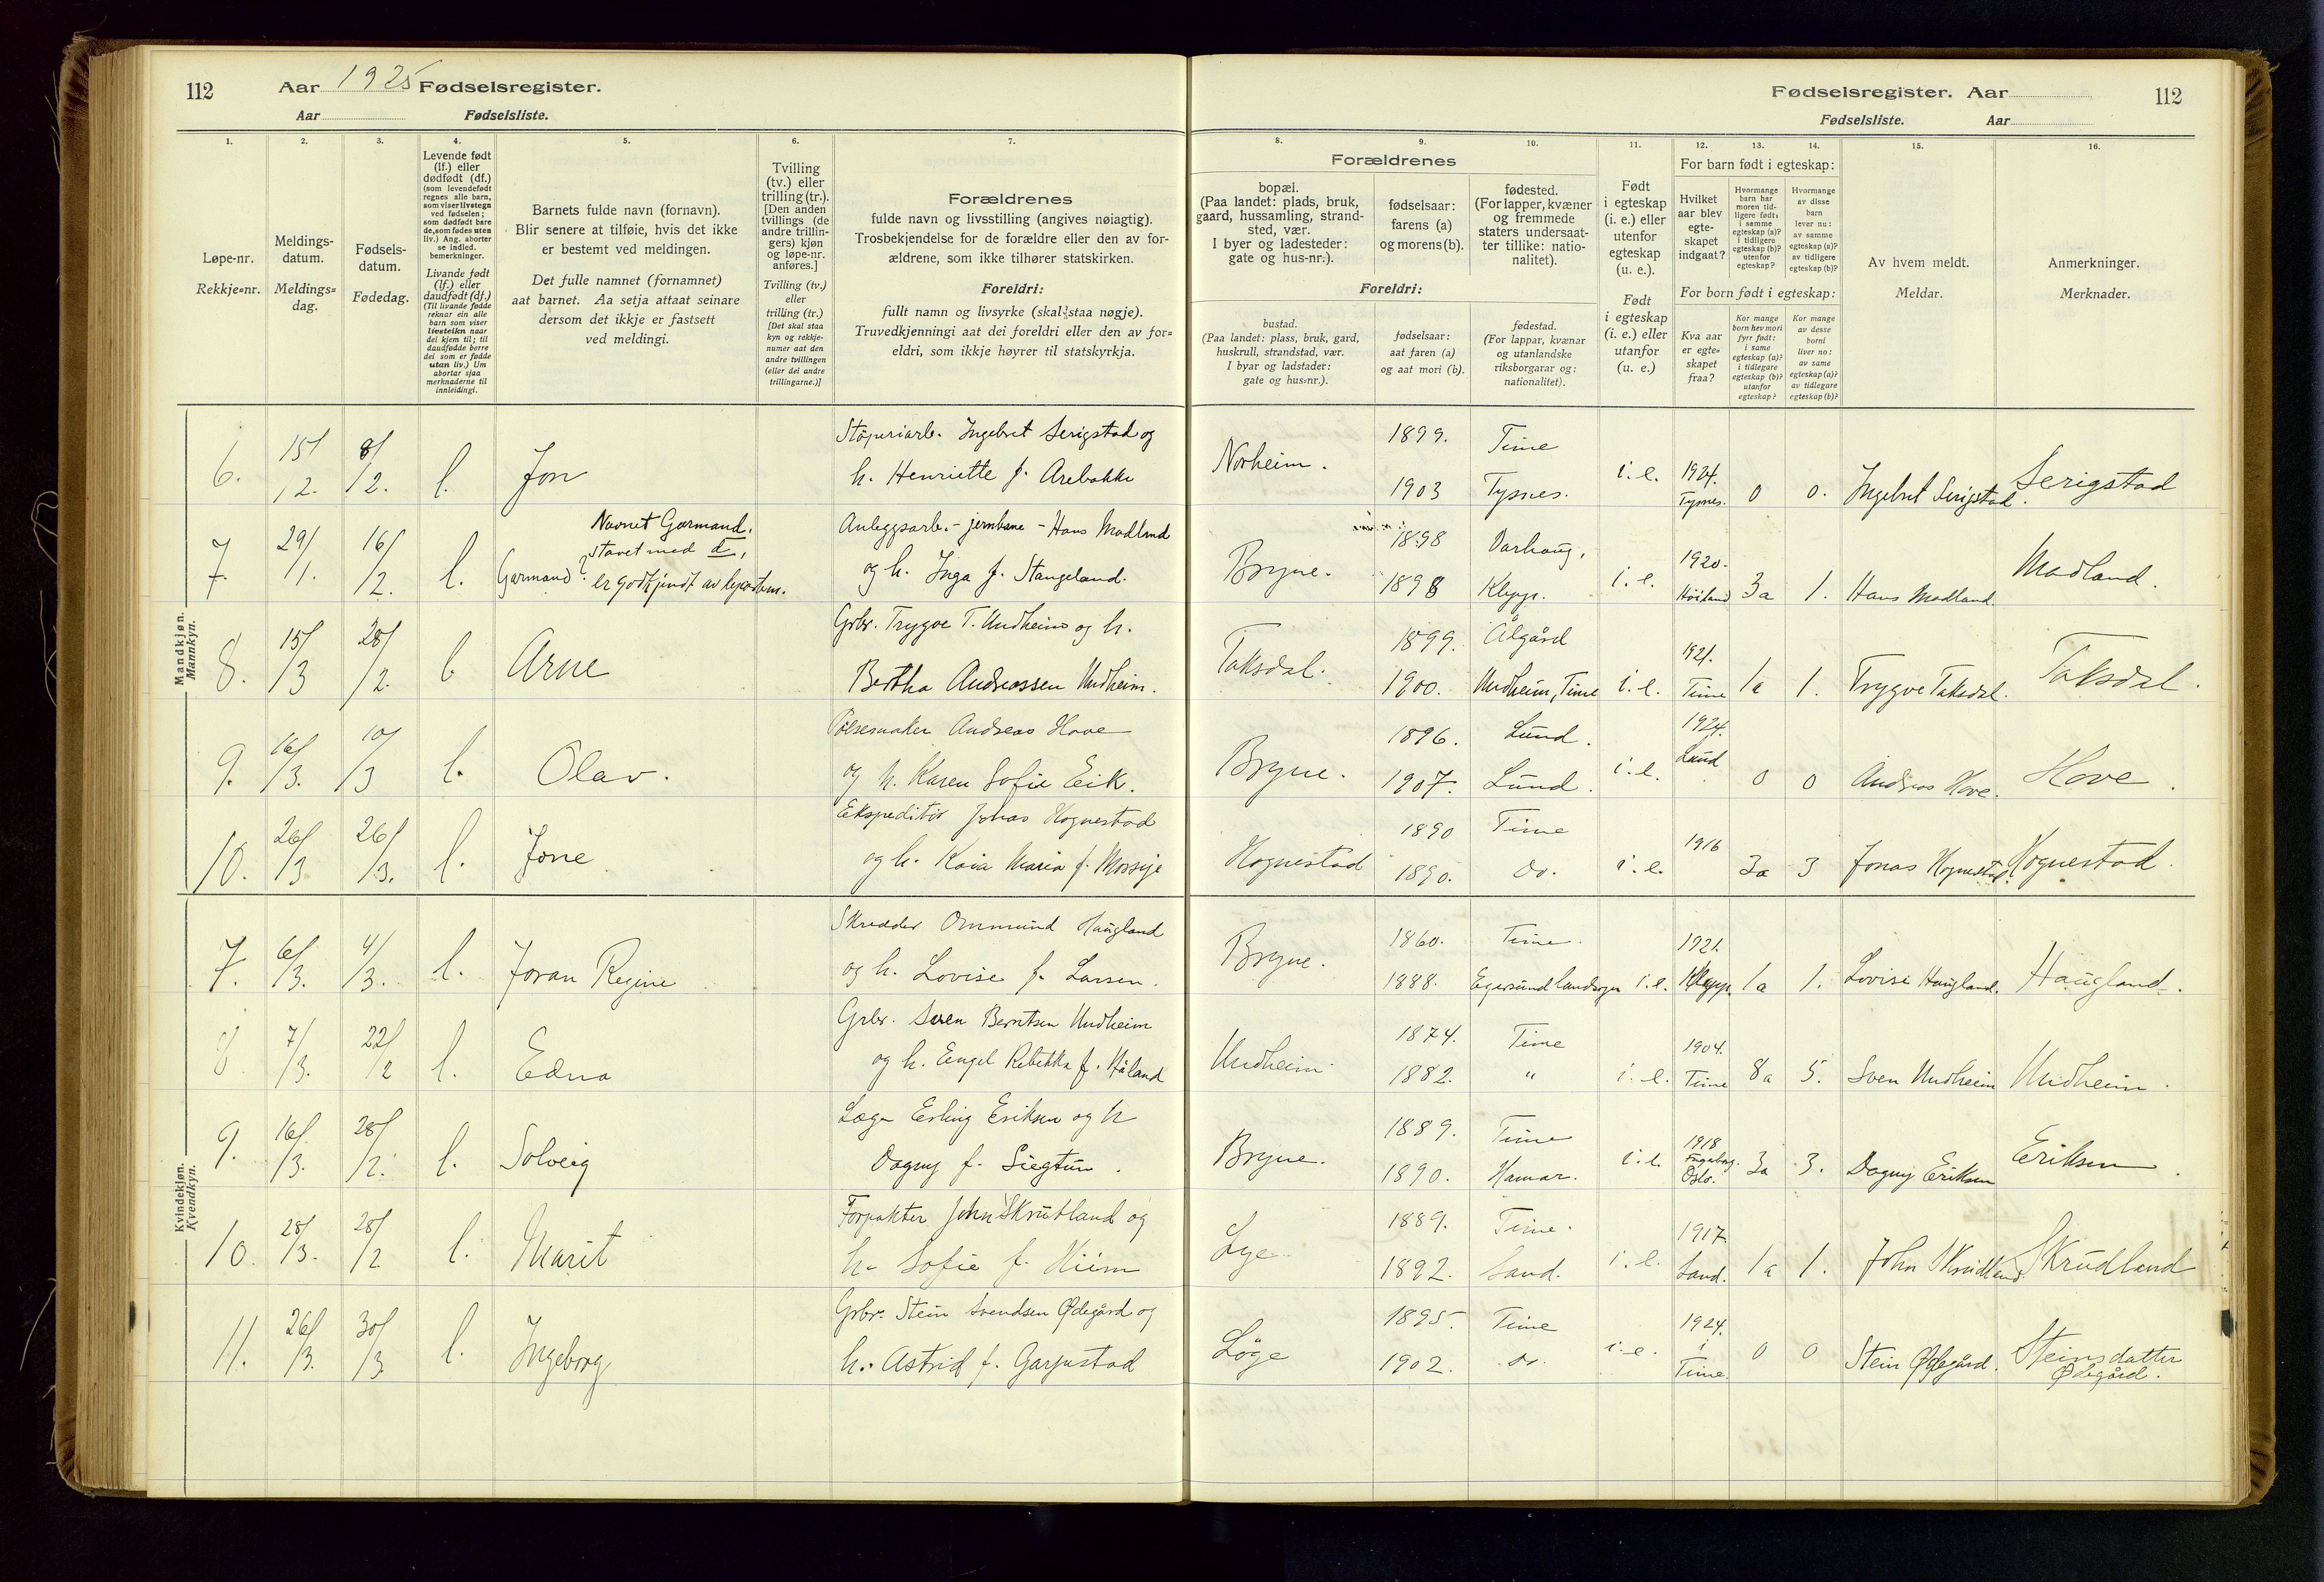 112 Aar 1925 Fødselsregister.
Aar Fødselsliste.
Fødselsregister. Aar 112
Fødselsliste. Aar
1. 2. 3. 4. 5. 6. 7. 8. 9. 10. 11. 12. 13. 14. 15. 16.
Løpe-nr.
Rekkje-nr.
Meldings-
datum.
Meldings-
dag.
Fødsels-
datum.
Fødedag.
Levende født
(lf.) eller
dødfødt (df.)
(som levendefødt
regnes alle barn,
som viser livstegn
ved fødselen;
som dødfødt bare
de, som fødes uten
liv.) Ang. aborter
se indled.
bemerkninger.
Livande født
(lf.) eller
daudfødt (df.)
(Til livande fødde
reknar ein alle
barn som viser
livsteikn naar
dei kjem til; til
daudfødde berre
dei som er fødde
utan liv.) Um
abortar sjaa
merknaderne til
innleidingi.
Barnets fulde navn (fornavn).
Blir senere at tilføie, hvis det ikke
er bestemt ved meldingen.
Det fulle namnet (fornamnet)
aat barnet. Aa setja attaat seinare
dersom det ikkje er fastsett
ved meldingi.
Tvilling
(tv.) eller
trilling (tr.).
[Den anden
tvillings (de
andre trillin-
gers) kjøn
og løpe-nr.
anføres.]
Tvilling (tv.)
eller
trilling (tr.)
[Det skal staa
kyn og rekkje-
numer aat den
andre tvillingen
(eller dei andre
trillingarne.)]
Forældrenes
fulde navn og livsstilling (angives nøiagtig).
Trosbekjendelse for de forældre eller den av for-
ældrene, som ikke tilhører statskirken.
Foreldri:
fullt namn og livsyrke (skal staa nøgje).
Truvedkjenningi aat dei foreldri eller den av for-
eldri, som ikkje høyrer til statskyrkja.
Forældrenes
bopæl.
(Paa landet: plads, bruk,
gaard, hussamling, strand-
sted, vær.
I byer og ladesteder:
gate og hus-nr.).
fødselsaar:
farens (a)
og morens (b).
fødested.
(For lapper, kvæner
og fremmede
staters undersaat-
ter tillike: natio-
nalitet).
Foreldri:
bustad.
(Paa landet: plass, bruk, gard,
huskrull, strandstad, vær.
I byar og ladstader:
gate og hus-nr.).
fødselsaar:
aat faren (a)
og aat mori (b).
fødestad.
(For lappar, kvænar
og utanlandske
riksborgarar og:
nationalitet).
Født
i egteskap
(i. e.) eller
utenfor
egteskap
(u. e.).
Født
i egteskap
(i. e.) eller
utanfor
(u. e.)
For barn født i egteskap:
Hvilket
aar blev
egte-
skapet
indgaat?
Hvormange
barn har
moren tid-
ligere født:
i samme
egteskap (a)?
i tidligere
egteskap (b)?
utenfor
egteskap?
Hvormange
av disse
barn
lever nu:
av samme
egteskap (a)?
av tidligere
egteskap (b)?
For born født i egteskap:
Kva aar
er egte-
skapet
fraa?
Kor mange
born hev mori
fyrr født:
i same
egteskap (a)?
i tidlegare
egteskap (b)?
utanfor
egteskap?
Kor mange
av desse
borni
liver no:
av same
egteskap (a)?
av tidlegare
egteskap (b)?
Av hvem meldt.
Meldar.
Anmerkninger.
Merknader.
Mandkjøn.
Mannkyn.
6. 15/2. 8/2. l. Jon
Støperiarb. Ingebret Serigstad og
h. Henriette f. Arebakke
Norheim. 1899. Time
1903 Tysnes. i. e. 1924. Tysnes. 0 0. Ingebret Serigstad. Serigstad
7. 29/1. 16/2. l. Garmand?
Navnet Garmand,
stavet med d,
er godkjendt av departem.
Anleggsarb. - jernbane - Hans Madland
og h. Inga f. Stangeland.
Bryne. 1898 Varhaug.
1898 Klepp. i. e. 1920. Høiland 3a 1. Hans Madland. Madland.
8. 15/3 28/2. l. Arne
Grbr. Trygve T. Undheim og h.
Bertha Andreassen Undheim.
Taksdal. 1899. Ålgård
1900. Undheim, Time i. e. 1921. Time 1a 1. Trygve Taksdal. Taksdal.
9. 16/3. 10/3 l. Olav.
Pølsemaker Andreas Hove
og h. Karen Sofie Eik.
Bryne. 1896. Lund.
1907. Lund. i. e. 1924. Lund 0 0 Andreas Hove. Hove.
10. 26/3 26/3. l. Jone
Ekspeditør Jonas Hognestad
og h. Kaia Maria f. Mossige
Hognestad 1890 Time
1890. do. i. e. 1916 3a 3 Jonas Hognestad. Hognestad.
Kvindekjøn.
Kvendkyn.
7. 6/3. 4/3. l. Joran Regine
Skredder Ommund Haugland
og h. Lovise f. Larsen.
Bryne. 1860. Time.
1888. Egersund landsogn i. e. 1921. Klepp. 1a 1. Lovise Haugland. Haugland.
8 7/3. 22/2 l. Edna
Grbr. Sven Berntsen Undheim
og h. Engel Rebekka f. Håland
Undheim. 1874. Time
1882. " i. e. 1904. Time 8a 5. Sven Undheim Undheim.
9. 16/3. 28/2. l. Solveig
Læge Erling Eriksen og h
Dagny f. Siegtun.
Bryne. 1889. Time
1890. Hamar. i. e. 1918 Oslo. 3a 3. Dagny Eriksen Eriksen.
10. 28/3. 28/2 l. Marit
Forpakter John Skrudland og
h. Sofie f. Hiim
Lye 1889. Time.
1892. Sand. i. e. 1917. Sand. 1a 1. John Skrudland Skrudland
11. 26/3. 30/3 l. Ingeborg
Grbr. Stein Svendsen Ødegård og
h. Astrid f. Garpestad
Løge 1895. Time
1902. do. i. e. 1924. i Time. 0 0 Stein Ødegård. Steinsdatter
Ødegård.